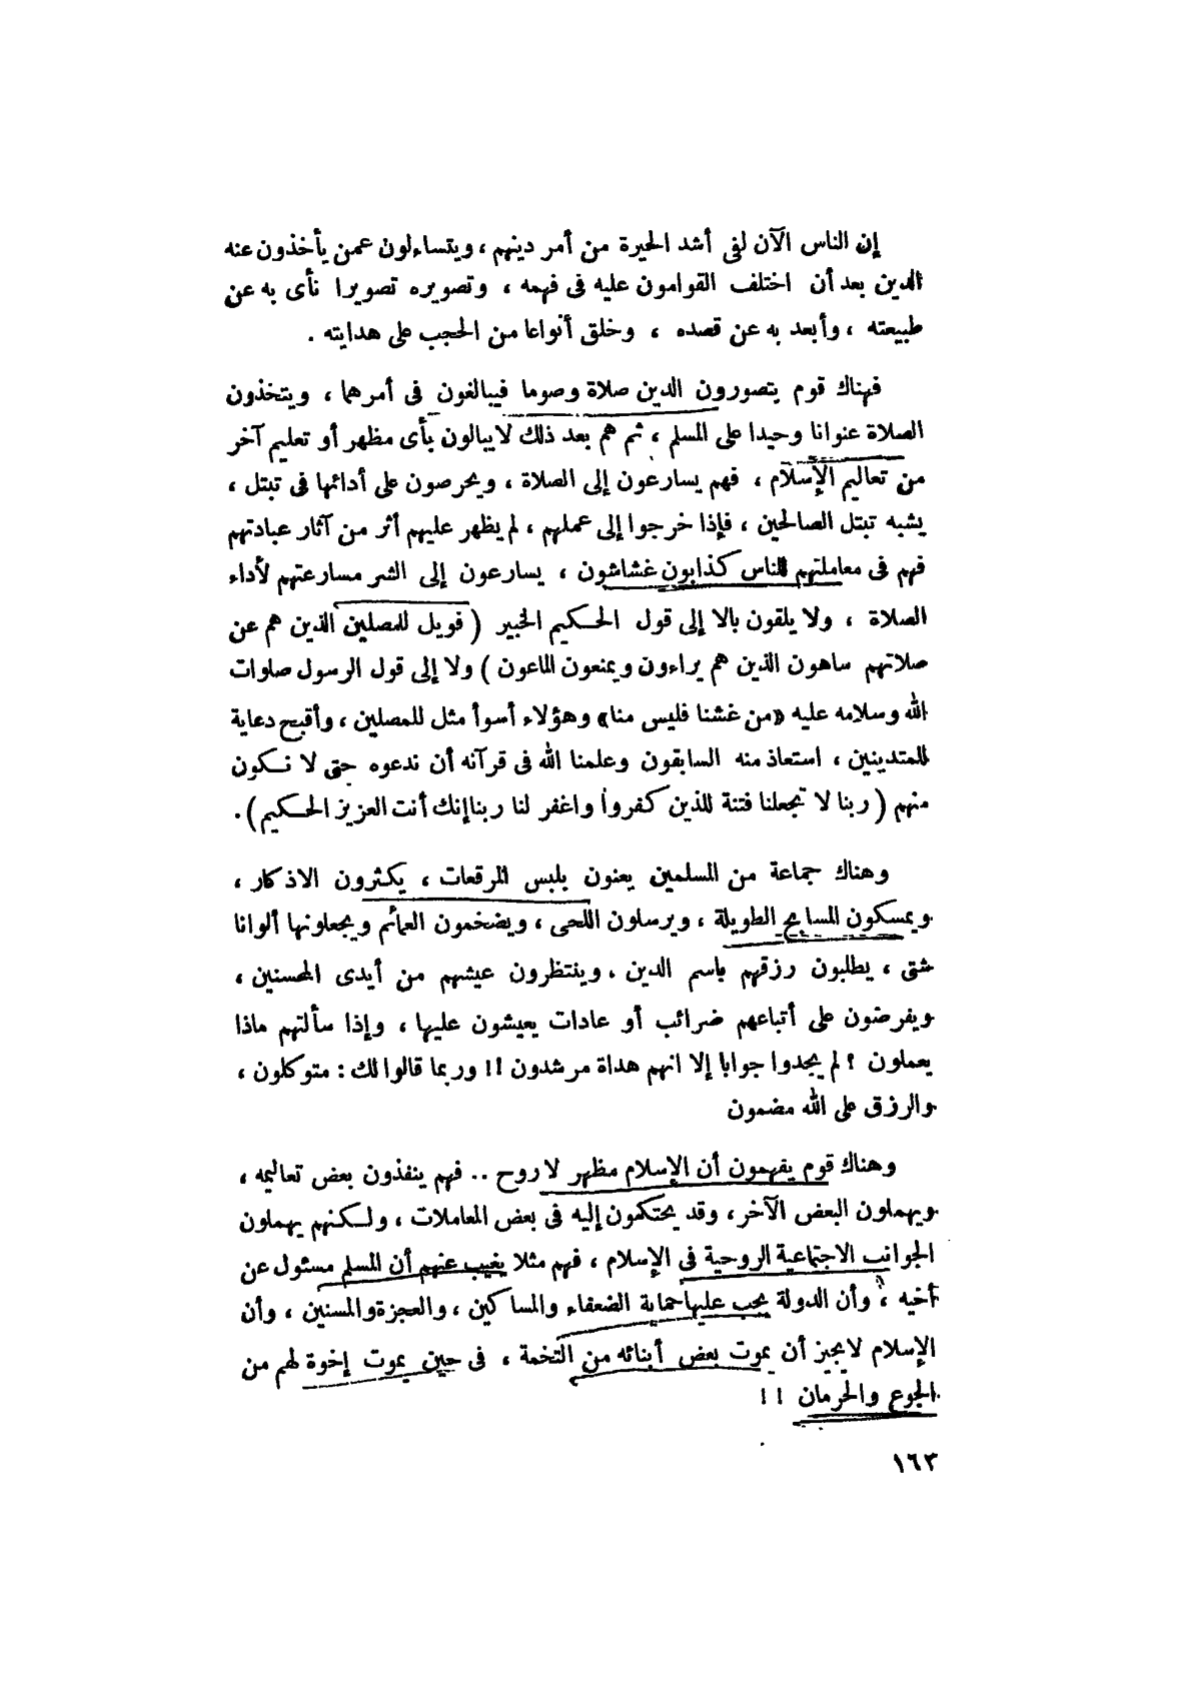 إن الناس الآن لفى أشد الحيرة من أمر دينهم ، ويتساءلون عمن يأخذون عنه
الدين بعد أن اختلف القوامون عليه فى فهمه ، وتصويره تصويرا نأى به عن
طبيعته ، وأبعد به عن قصده ، وخلق أنواعا من الحجب على هدايته .
فهناك قوم يتصورون الدين صلاة وصوما فيبالغون فى أمرهما ، ويتخذون
الصلاة عنوانا وحيدا على المسلم ، ثم هم بعد ذلك لايبالون بأى مظهر أو تعليم آخر
من تعاليم الإسلام ، فهم يسارعون إلى الصلاة ، ويحرصون على أدائها فى تبتل ،
يشبه تبتل الصالحين ، فإذا خرجوا إلى عملهم ، لم يظهر عليهم أثر من آثار عبادتهم
فهم فى معاملتهم للناس كذابون غشاشون ، يسارعون إلى الشر مسارعتهم لأداء
الصلاة ، ولا يلقون بالا إلى قول الحكيم الخبير ( فويل للمصلين الذين هم عن
صلاتهم ساهون الذين هم يراءون ويمنعون الماعون ) ولا إلى قول الرسول صلوات
الله وسلامه عليه «من غشنا فليس منا» وهؤلاء أسوأ مثل للمصلين ، وأقبح دعاية
للمتدينين ، استعاذ منه السابقون وعلمنا الله فى قرآنه أن ندعوه حتى لا نكون
منهم ( ربنا لا تجعلنا فتنة للذين كفروا واغفر لنا ربنا إنك أنت العزيز الحكيم ) .
وهناك جماعة من المسلمين يعنون بلبس المرقعات ، يكثرون الاذكار ،
ويمسكون المسابح الطويلة ، ويرسلون اللحى ، ويضخمون العمائم ويجعلونها ألوانا
شتى ، يطلبون رزقهم باسم الدين ، وينتظرون عيشهم من أيدى المحسنين ،
ويفرضون على أتباعهم ضرائب أو عادات يعيشون عليها ، وإذا سألتهم ماذا
يعملون ؟ لم يجدوا جوابا إلا انهم هداة مرشدون !! وربما قالوا لك : متوكلون ،
والرزق على الله مضمون
وهناك قوم يفهمون أن الإسلام مظهر لا روح .. فهم ينفذون بعض تعاليمه ،
ويهملون البعض الآخر ، وقد يحتكمون إليه فى بعض المعاملات ، ولكنهم يهملون
الجوانب الاجتماعية الروحية فى الإسلام ، فهم مثلا يغيب عنهم أن المسلم مسئول عن
أخيه ، وأن الدولة يجب عليها حماية الضعفاء والمساكين ، والعجزة والمسنين ، وأن
الإسلام لا يجيز أن يموت بعض أبنائه من التخمة ، فى حين يموت إخوة لهم من
الجوع والحرمان !!
١٦٣